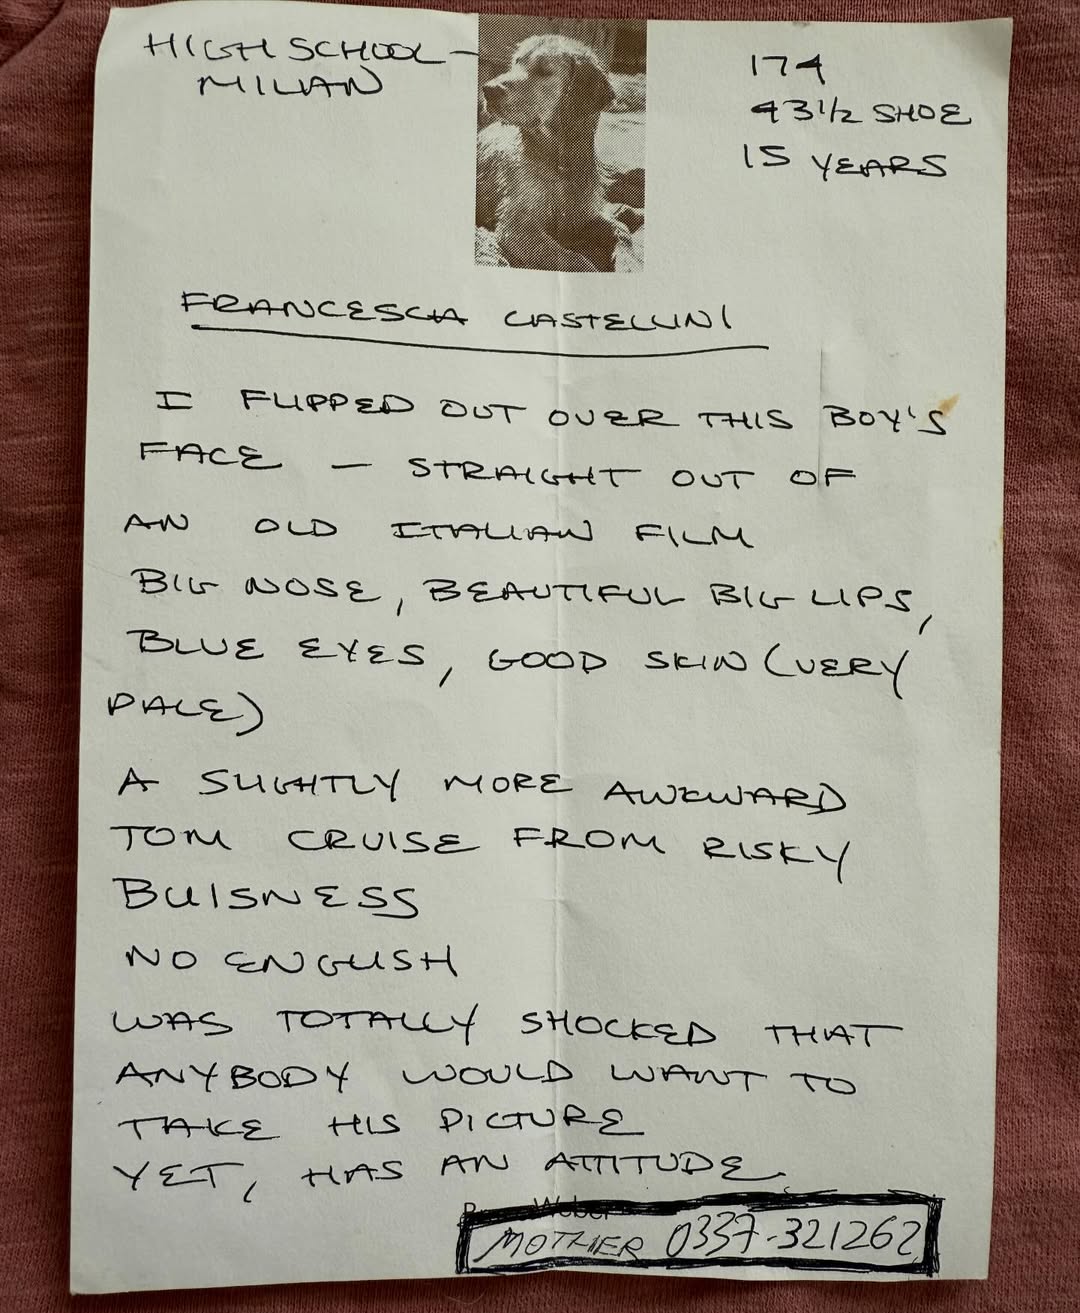 HIGH SCHOOL -
MILAN
174
43 1/2 SHOE
15 YEARS
FRANCESCA CASTELLINI
I FLIPPED OUT OVER THIS BOY'S
FACE — STRAIGHT OUT OF
AN OLD ITALIAN FILM
BIG NOSE, BEAUTIFUL BIG LIPS,
BLUE EYES, GOOD SKIN (VERY
PALE)
A SLIGHTLY MORE AWKWARD
TOM CRUISE FROM RISKY
BUISNESS
NO ENGLISH
WAS TOTALLY SHOCKED THAT
ANYBODY WOULD WANT TO
TAKE HIS PICTURE
YET, HAS AN ATTITUDE
Weber
MOTHER 0337-321262